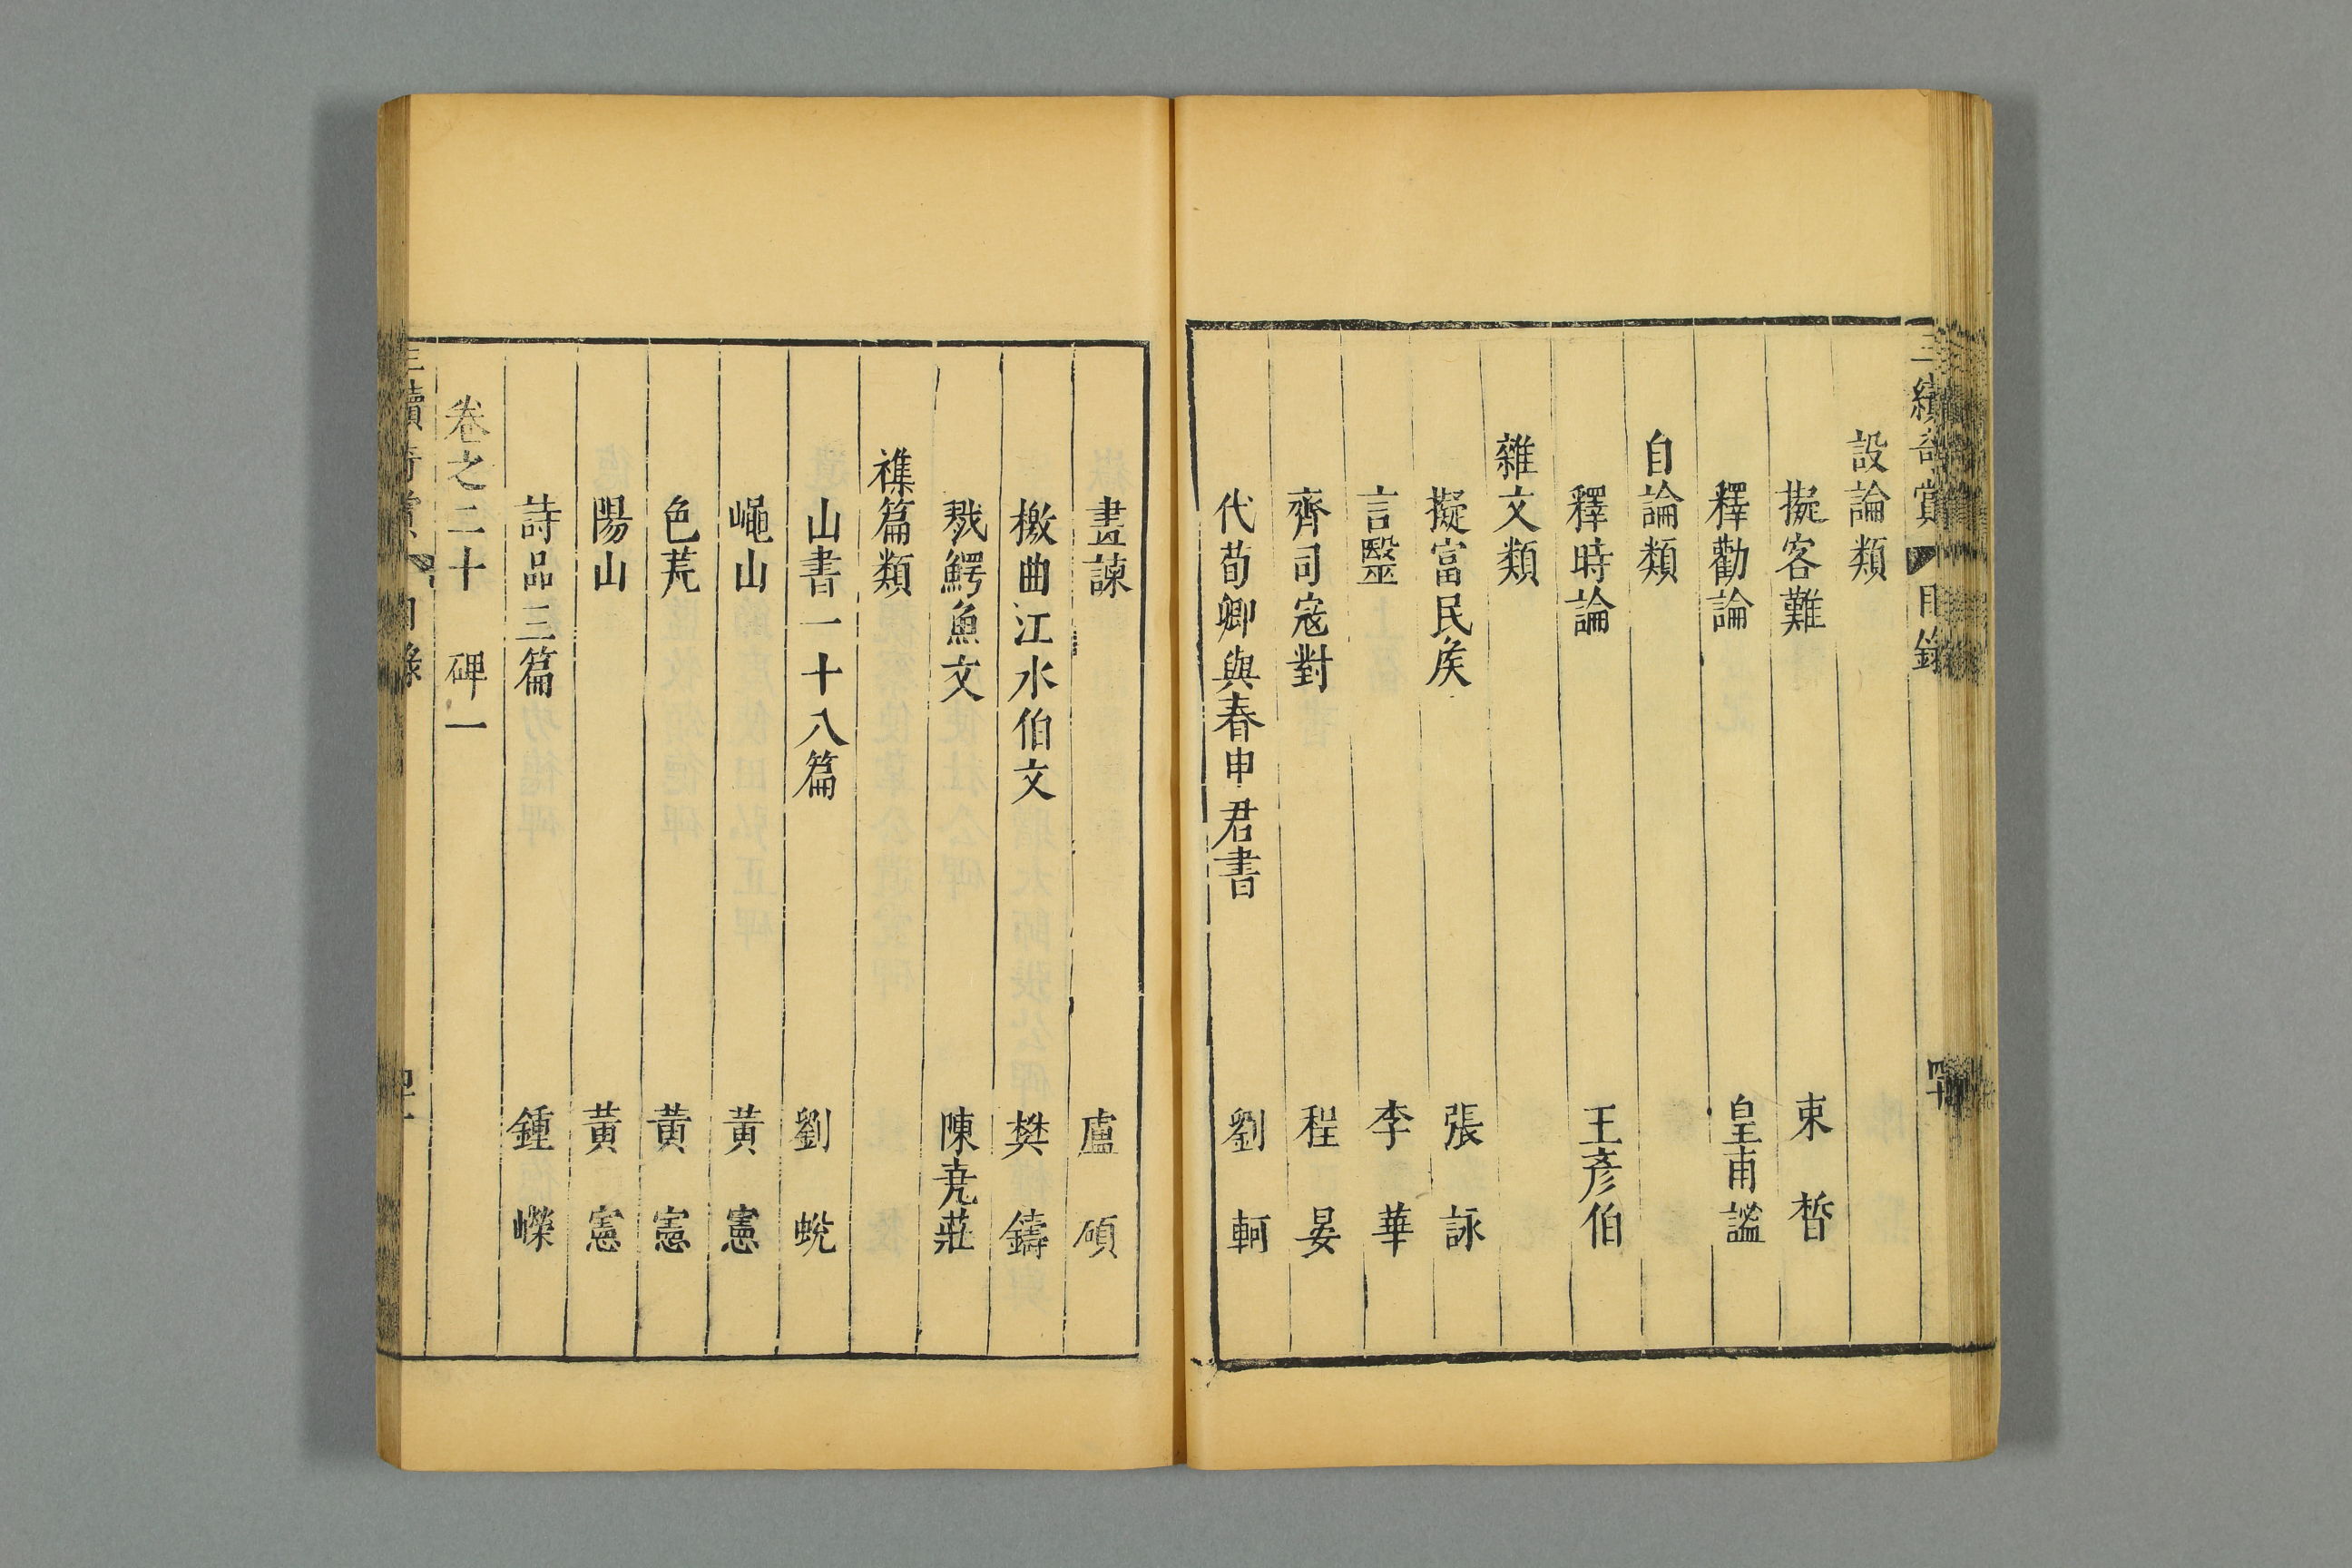 三續奇賞 目錄 四十
設論類
擬客難 束皙
釋勸論 皇甫謐
自論類
釋時論 王彥伯
雜文類
擬富民矦 張詠
言毉 李華
齊司寇對 程晏
代荀卿與春申君書 劉軻
畫諫 盧碩
檄曲江水伯文 樊鑄
戮鰐魚文 陳尭莊
襍篇類
山書一十八篇 劉蛻
嵶山 黃憲
色荒 黃憲
陽山 黃憲
詩品三篇 鍾嶸
卷之二十 碑一
三續奇賞 目錄